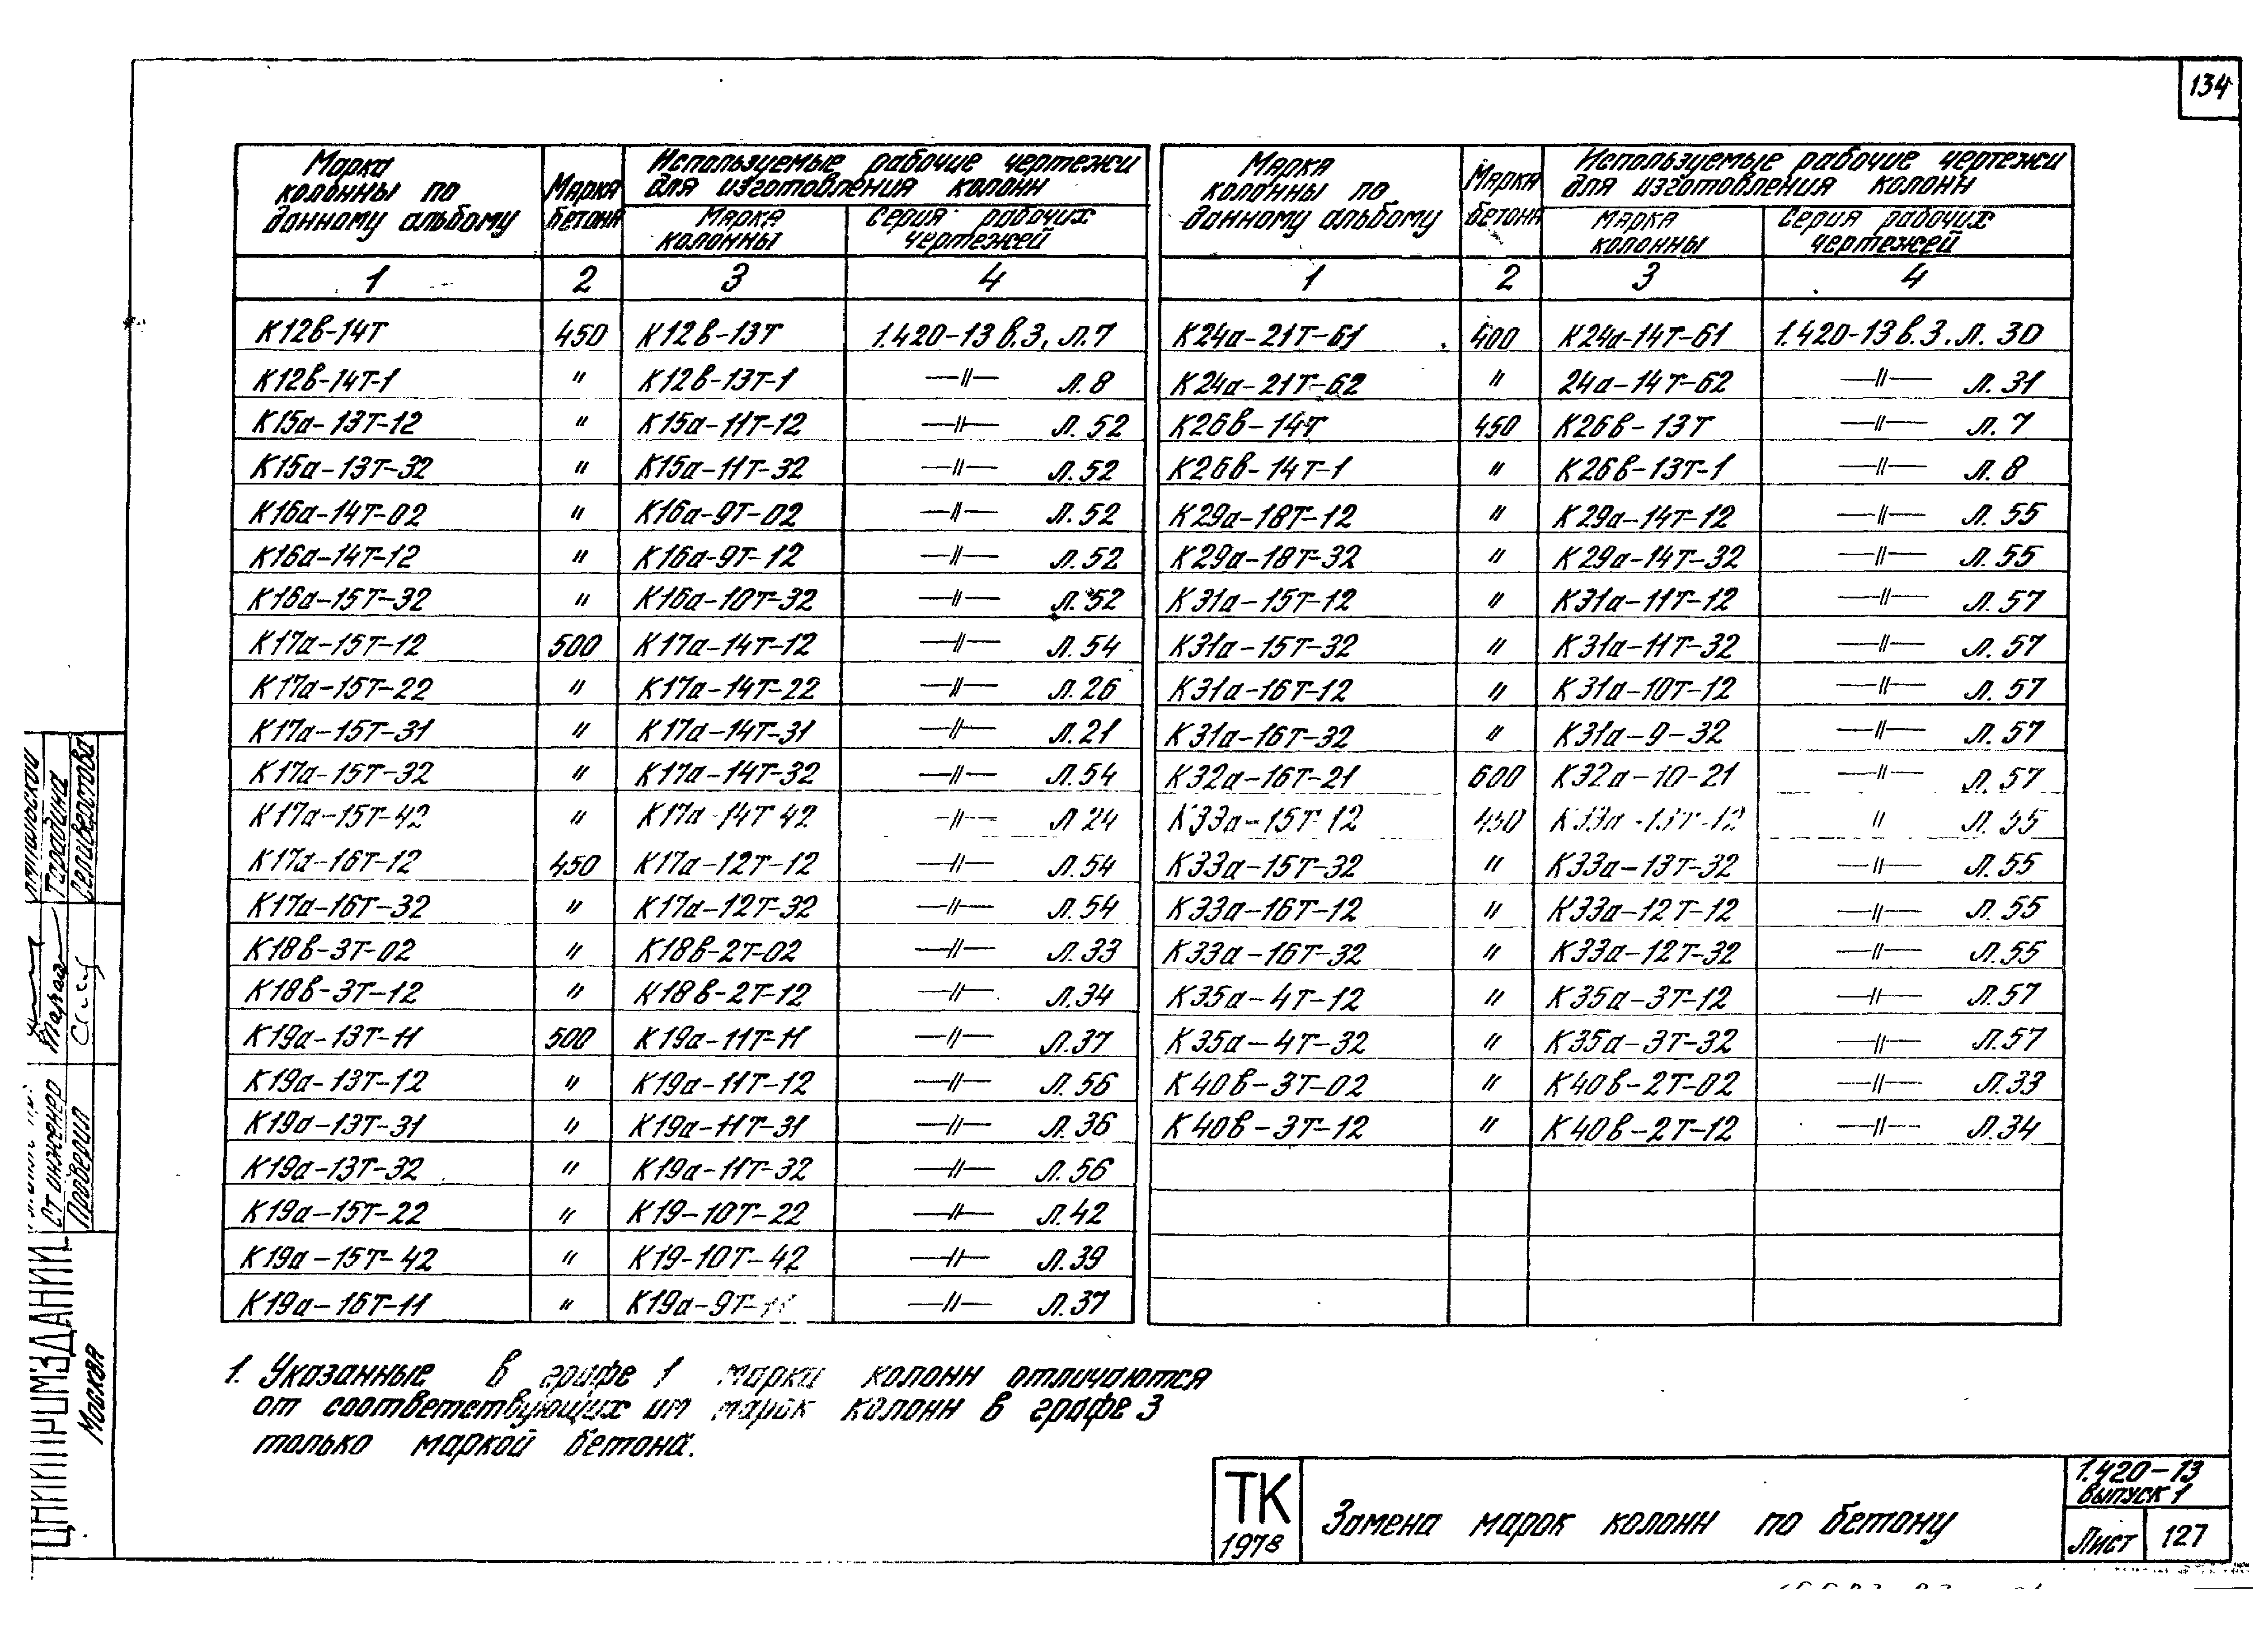 134
Марка колонны по данному альбому | Марка бетона | Используемые рабочие чертежи для изготовления колонн
Марка колонны | Серия рабочих чертежей
1 | 2 | 3 | 4
К12в-14Т | 450 | К12в-13Т | 1.420-13 в.3, л.7
К12в-14Т-1 | " | К12в-13Т-1 | —"— л.8
К15а-13Т-12 | " | К15а-11Т-12 | —"— л.52
К15а-13Т-32 | " | К15а-11Т-32 | —"— л.52
К16а-14Т-02 | " | К16а-9Т-02 | —"— л.52
К16а-14Т-12 | " | К16а-9Т-12 | —"— л.52
К16а-15Т-32 | " | К16а-10Т-32 | —"— л.52
К17а-15Т-12 | 500 | К17а-14Т-12 | —"— л.54
К17а-15Т-22 | " | К17а-14Т-22 | —"— л.26
К17а-15Т-31 | " | К17а-14Т-31 | —"— л.21
К17а-15Т-32 | " | К17а-14Т-32 | —"— л.54
К17а-15Т-42 | " | К17а 14Т 42 | —"— л 24
К17а-16Т-12 | 450 | К17а-12Т-12 | —"— л.54
К17а-16Т-32 | " | К17а-12Т-32 | —"— л.54
К18в-3Т-02 | " | К18в-2Т-02 | —"— л.33
К18в-3Т-12 | " | К18в-2Т-12 | —"— л.34
К19а-13Т-11 | 500 | К19а-11Т-11 | —"— л.37
К19а-13Т-12 | " | К19а-11Т-12 | —"— л.56
К19а-13Т-31 | " | К19а-11Т-31 | —"— л.36
К19а-13Т-32 | " | К19а-11Т-32 | —"— л.56
К19а-15Т-22 | " | К19-10Т-22 | —"— л.42
К19а-15Т-42 | " | К19-10Т-42 | —"— л.39
К19а-16Т-11 | " | К19а-9Т-11 | —"— л.37
Марка колонны по данному альбому | Марка бетона | Используемые рабочие чертежи для изготовления колонн
Марка колонны | Серия рабочих чертежей
1 | 2 | 3 | 4
К24а-21Т-61 | 400 | К24а-14Т-61 | 1.420-13 в.3. л. 30
К24а-21Т-62 | " | 24а-14Т-62 | —"— л.31
К26в-14Т | 450 | К26в-13Т | —"— л.7
К26в-14Т-1 | " | К26в-13Т-1 | —"— л.8
К29а-18Т-12 | " | К29а-14Т-12 | —"— л.55
К29а-18Т-32 | " | К29а-14Т-32 | —"— л.55
К31а-15Т-12 | " | К31а-11Т-12 | —"— л.57
К31а-15Т-32 | " | К31а-11Т-32 | —"— л.57
К31а-16Т-12 | " | К31а-10Т-12 | —"— л.57
К31а-16Т-32 | " | К31а-9-32 | —"— л.57
К32а-16Т-21 | 600 | К32а-10-21 | —"— л.57
К33а-15Т 12 | 450 | К33а-13Т-12 | " л.55
К33а-15Т-32 | " | К33а-13Т-32 | —"— л.55
К33а-16Т-12 | " | К33а-12Т-12 | —"— л.55
К33а-16Т-32 | " | К33а-12Т-32 | —"— л.55
К35а-4Т-12 | " | К35а-3Т-12 | —"— л.57
К35а-4Т-32 | " | К35а-3Т-32 | —"— л.57
К40в-3Т-02 | " | К40в-2Т-02 | —"— л.33
К40в-3Т-12 | " | К40в-2Т-12 | —"— л.34
1. Указанные в графе 1 марки колонн отличаются
от соответствующих им марок колонн в графе 3
только маркой бетона.
ТК
1978
Замена марок колонн по бетону
1.420-13
выпуск 1
Лист 127
Ст инженер Тарадина
Проверил Селиверстова
ЦНИИПРОМЗДАНИЙ
Москва